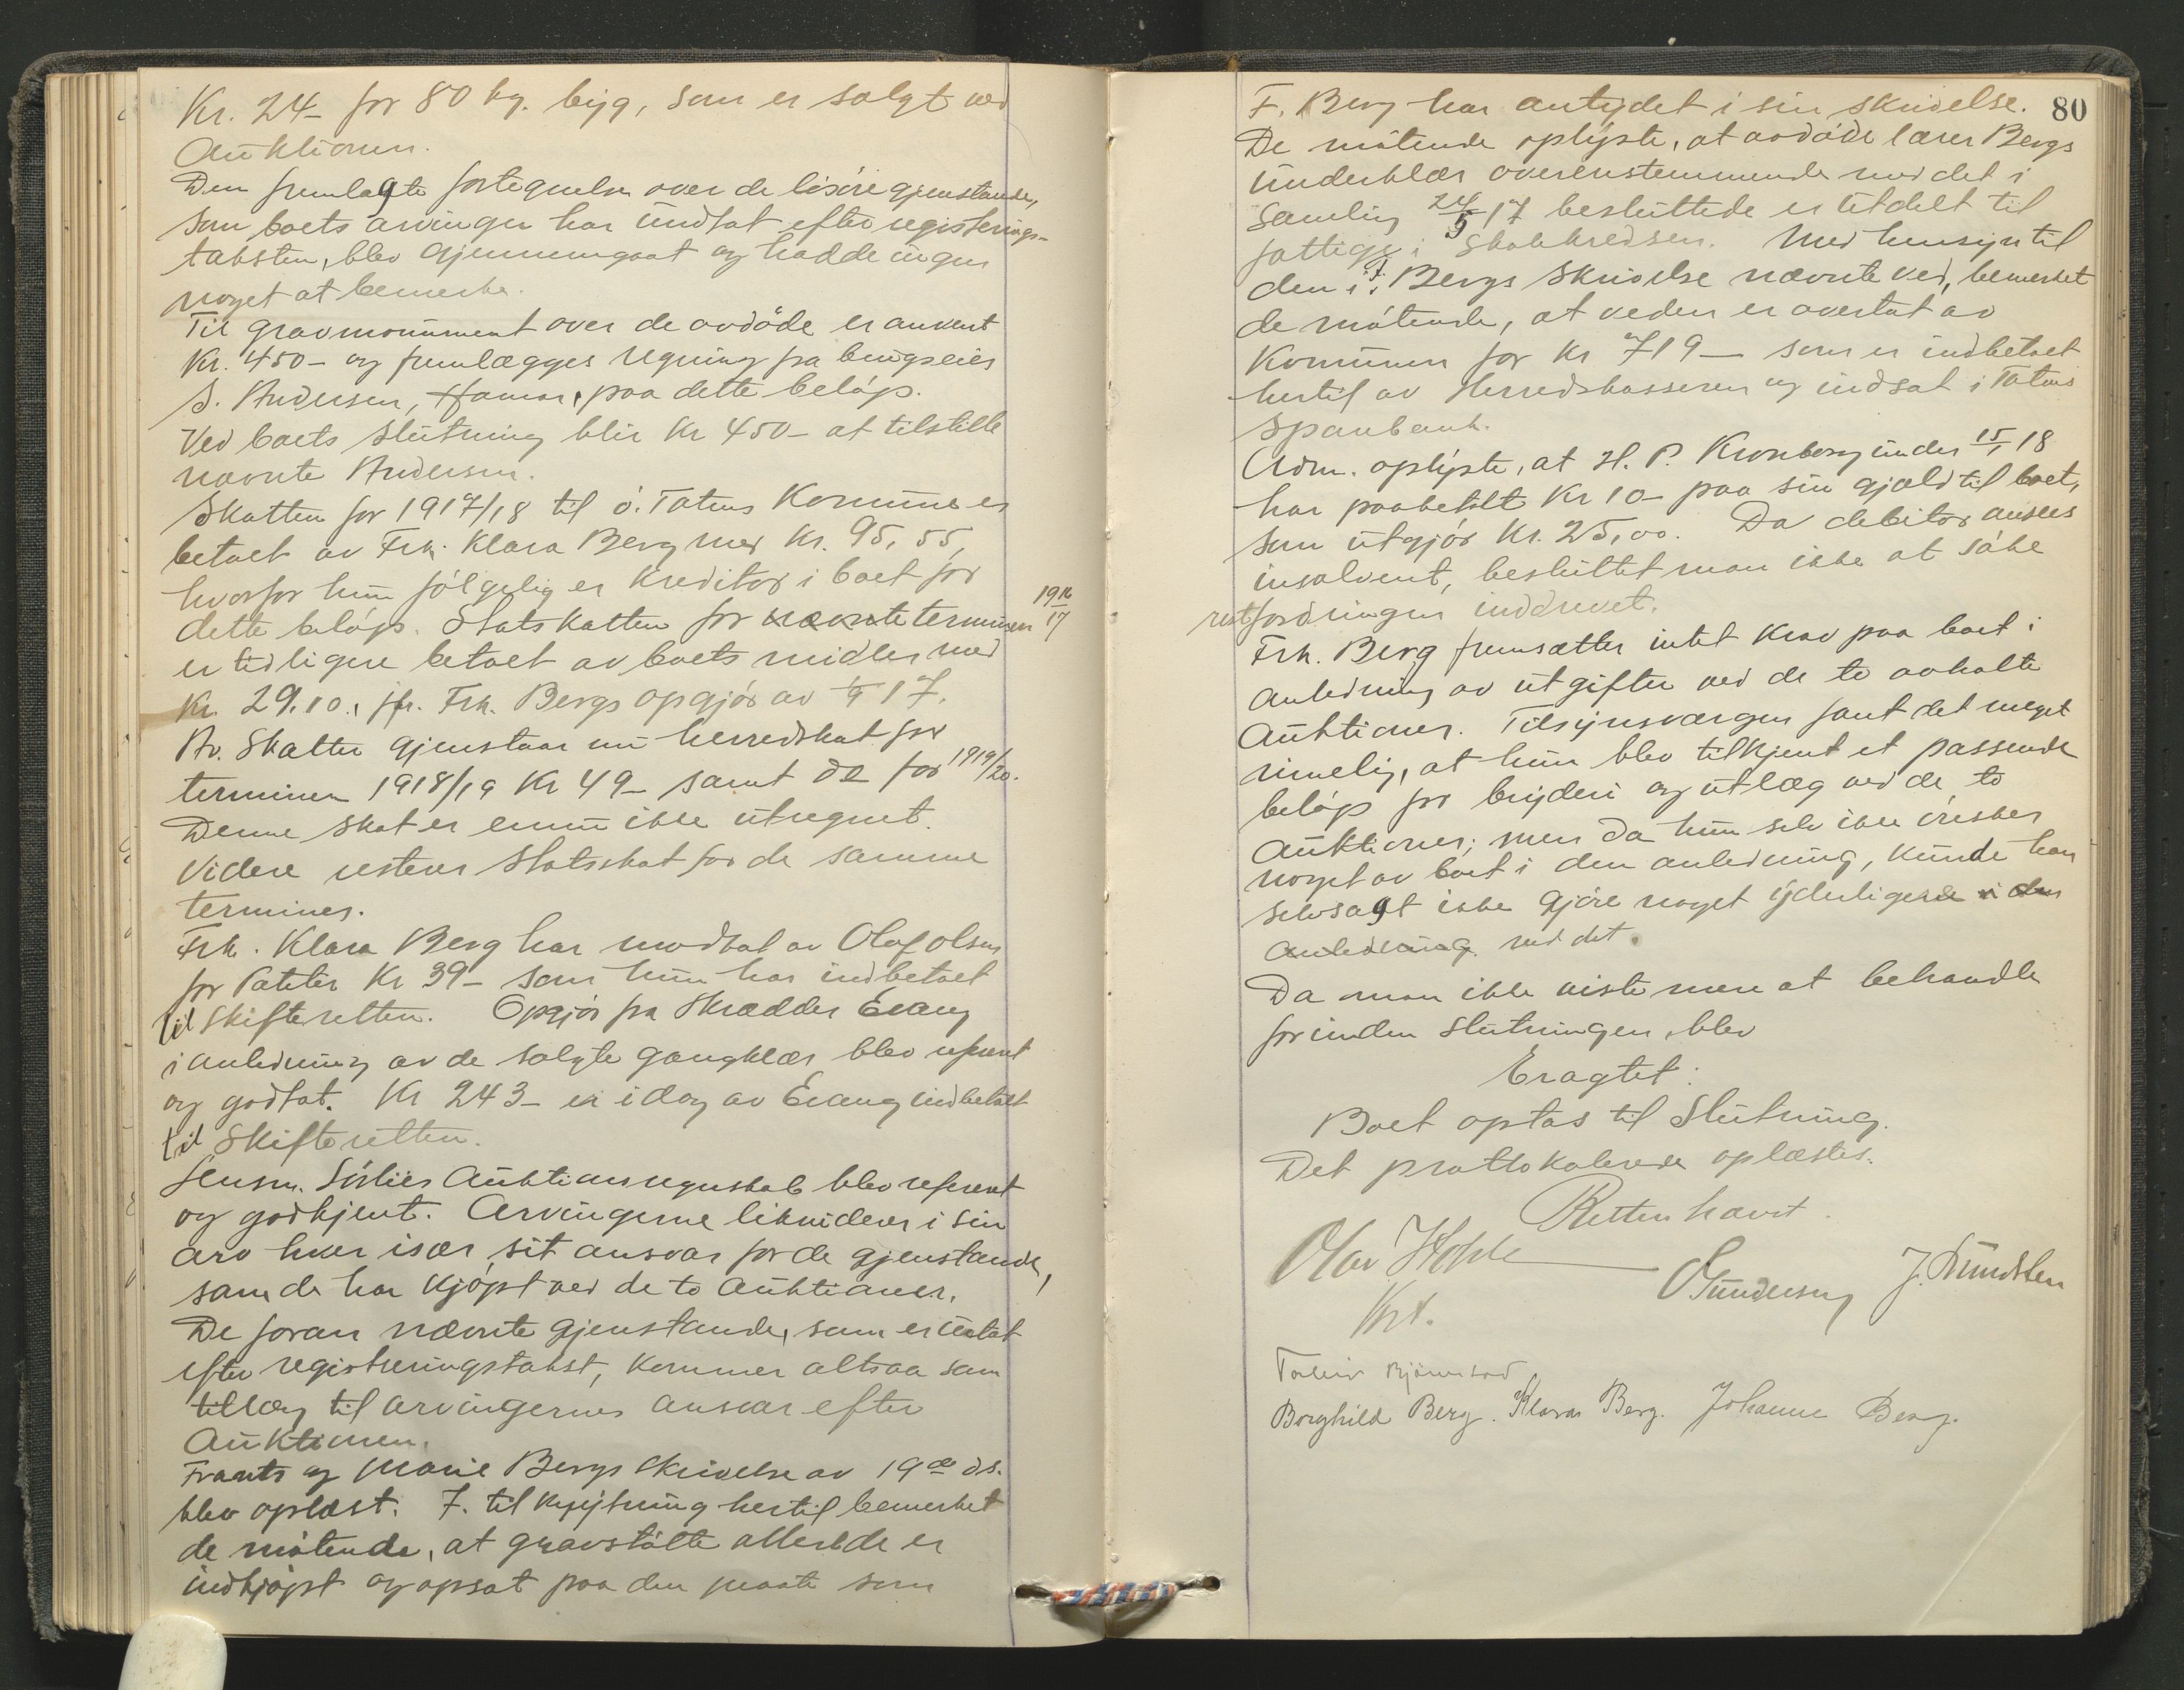 Kr. 24- for 80 kg. byg, som er solgt ved
Auktionen.
Den fremlagte fortegnelse over de løsøregjenstande,
som boets arvinger har undtat efter registrerings-
taksten, blev gjennemgaat og hadde ingen
noget at bemerke.
Til gravmonument over de avdøde er anvent
Kr. 450- og fremlægges regning fra
S. Andersen, Hamar, paa dette beløp.
Ved boets slutning blir Kr 450- at tilstille
nævnte Andersen.
Skatten for 1917/18 til Ø. Totens Kommune er
betalt av Frk. Klara Berg med Kr. 95,55,
hvorfor hun følgelig er Kreditor i boet for
dette beløp. Statskatten for nævnte terminen 1916/17
er tidligere betalt av boets midler med
Kr. 29.10., jfr. Frk. Bergs opgjør av 17.
Av Skatter gjenstaar nu herredskat for
terminen 1918/19 Kr 49- samt do for 1919/20.
Denne skat er ennu ikke utregnet.
Videre resterer Statsskat for de samme
terminer.
Frk. Klara Berg har modtat av Olaf Olsen
for Poteter Kr 39- som hun har indbetalt
til Skifteretten. Opgjør fra Skrædder Evang
i anledning av de solgte gangklær blev referert
og godtat. Kr 243- er idag av Evang indbetalt
til Skifteretten.
Lensm. Sørlies Auktionsregnskab blev referert
og godkjent. Arvingerne likviderer i sin
arv hver især sit ansvar for de gjenstande,
som de har kjøpt ved de to Auktioner.
De foran nævnte gjenstande, som er uttat
efter registreringstakst, kommer altsaa som
tillæg til arvingernes ansvar efter
Auktionen.
Frants og Marie Bergs skrivelse av 19de ds.
blev oplæst. I tilknytning hertil bemerket
de møtende, at gravstøtte allerede er
indkjøpt og opsat paa den maate som
80
F. Berg har antydet i sin skrivelse.
De møtende oplyste, at avdøde lærer Bergs
underklær overenstemmende med det i
Samling 24/5 17 besluttede er utdelt til
fattige i Skolekredsen. Med hensyn til
den i F. Bergs Skrivelse nævnte ved, bemerket
de møtende, at veden er overtat av
Kommunen for Kr 719- som er indbetalt
hertil av Herredskasseren og indsat i Totens
Sparebank.
Adm. oplyste, at H. P. Kronborg under 15/1 18
har paabetalt Kr 10- paa sin gjæld til boet,
som utgjør Kr. 25,00. Da debitor ansees
insolvent, besluttet man ikke at søke
restfordringen inddrevet.
Frk. Berg fremsætter intet Krav paa boet i
anledning av utgifter ved de to avholte
Auktioner. Tilsynsværgen fant det meget
rimelig, at hun blev tilkjent et passende
beløp for bryderi og utlæg ved de to
Auktioner; men da hun selv ikke ønsker
noget av boet i den anledning, kunde han
selvsagt ikke gjøre noget yderligere i den
anledning ved det.
Da man ikke viste mere at behandle
forinden slutningen, blev
Eragtet:
Boet optas til Slutning.
Det prottokolerede oplæstes.
Retten hævet.
Olav
Kst.
O Gundersen
J. Sundsten
Borghild Berg. Klara Berg. Johanne Berg.